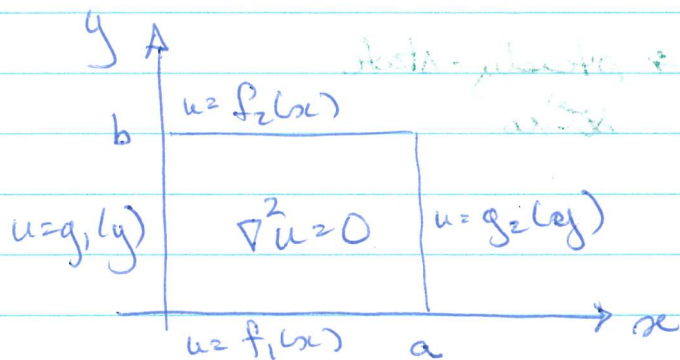 y
u = f₂(x)
b
u = g₁(y) ∇²u = 0 u = g₂(y)
x
u = f₁(x) a